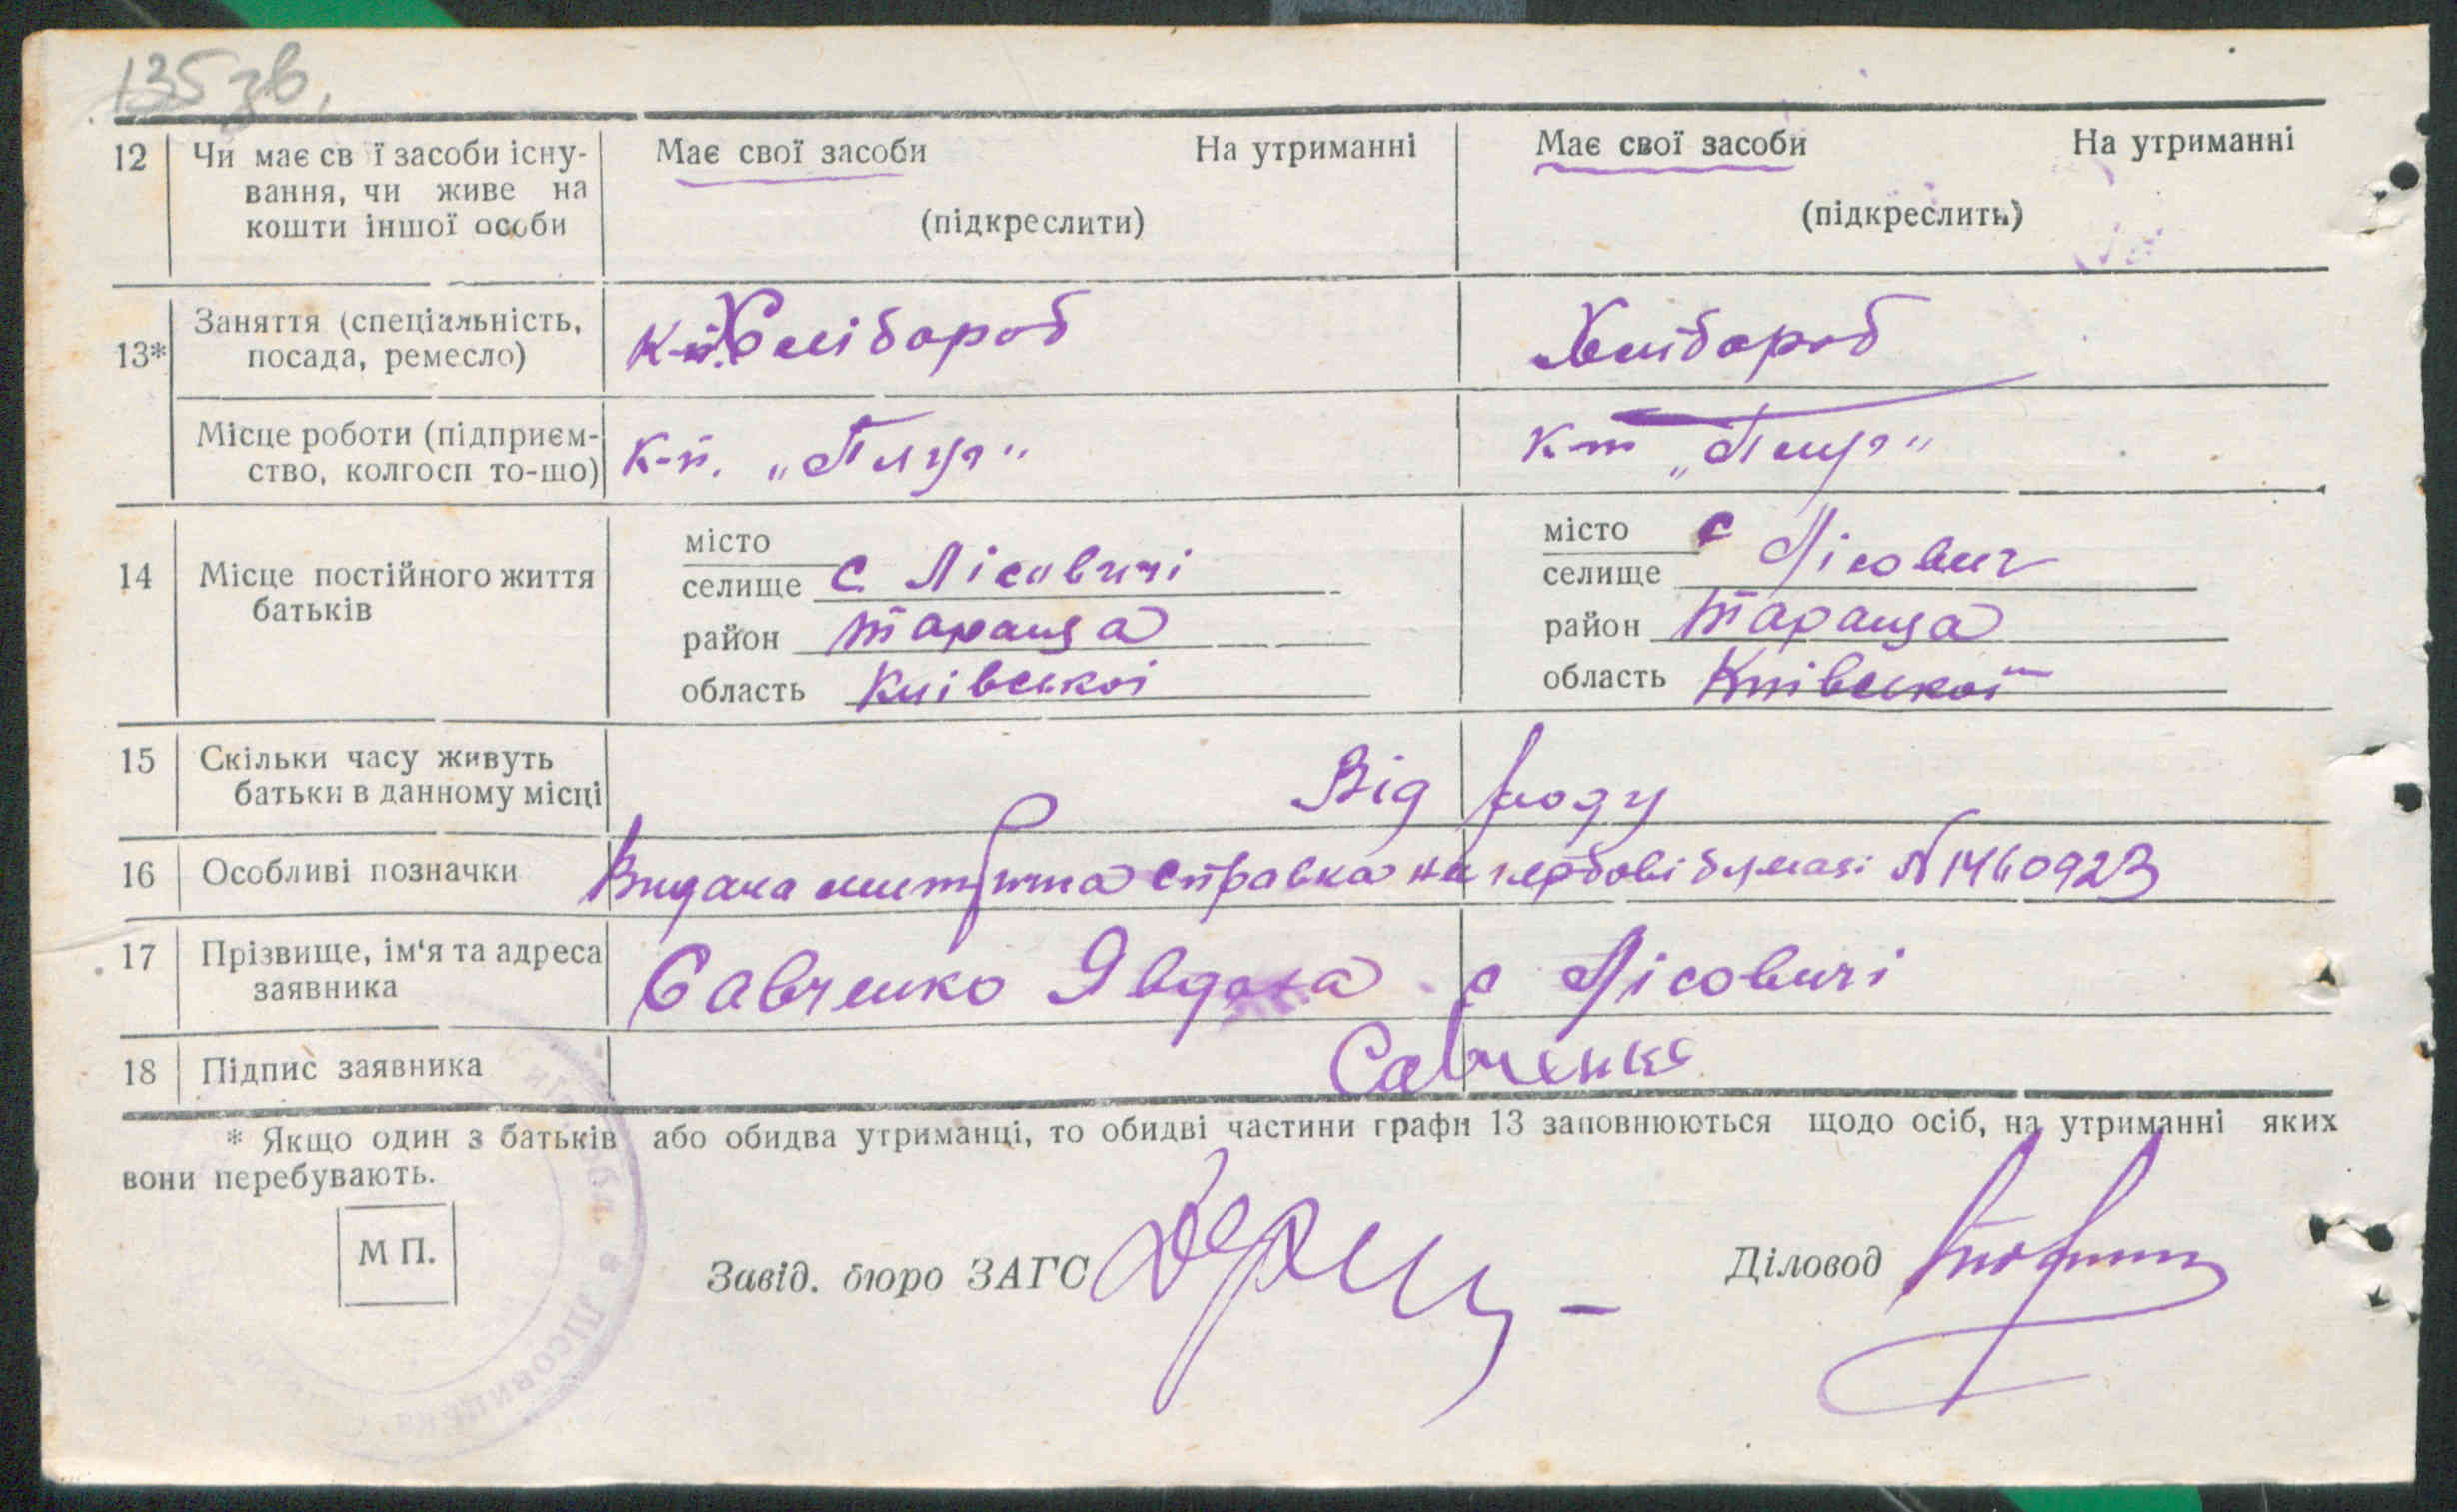 135 зв.
12 Чи має св ї засоби існу- Має свої засоби На утриманні Має свої засоби На утриманні
вання, чи живе на
кошти іншої особи (підкреслити) (підкреслить)
Заняття (спеціальність, Хлібороб Хлібороб
13* посада, ремесло)
Місце роботи (підприєм- К-п. „Плуг" к-т „Плуг"
ство, колгосп то-що)
місто місто
14 Місце постійного життя селище с Лісовичі селище с Лісович
батьків район Тараща район Тараща
область Київської область Київської
15 Скільки часу живуть Від роду
батьки в данному місці
16 Особливі позначки Видана справка на гербові бумазі № 1460923
17 Прізвище, ім'я та адреса Савченко Явдоха с Лісовичі
заявника
18 Підпис заявника Савченко
* Якщо один з батьків або обидва утриманці, то обидві частини графи 13 заповнюються щодо осіб, на утриманні яких
вони перебувають.
М П.
Завід. бюро ЗАГС Діловод